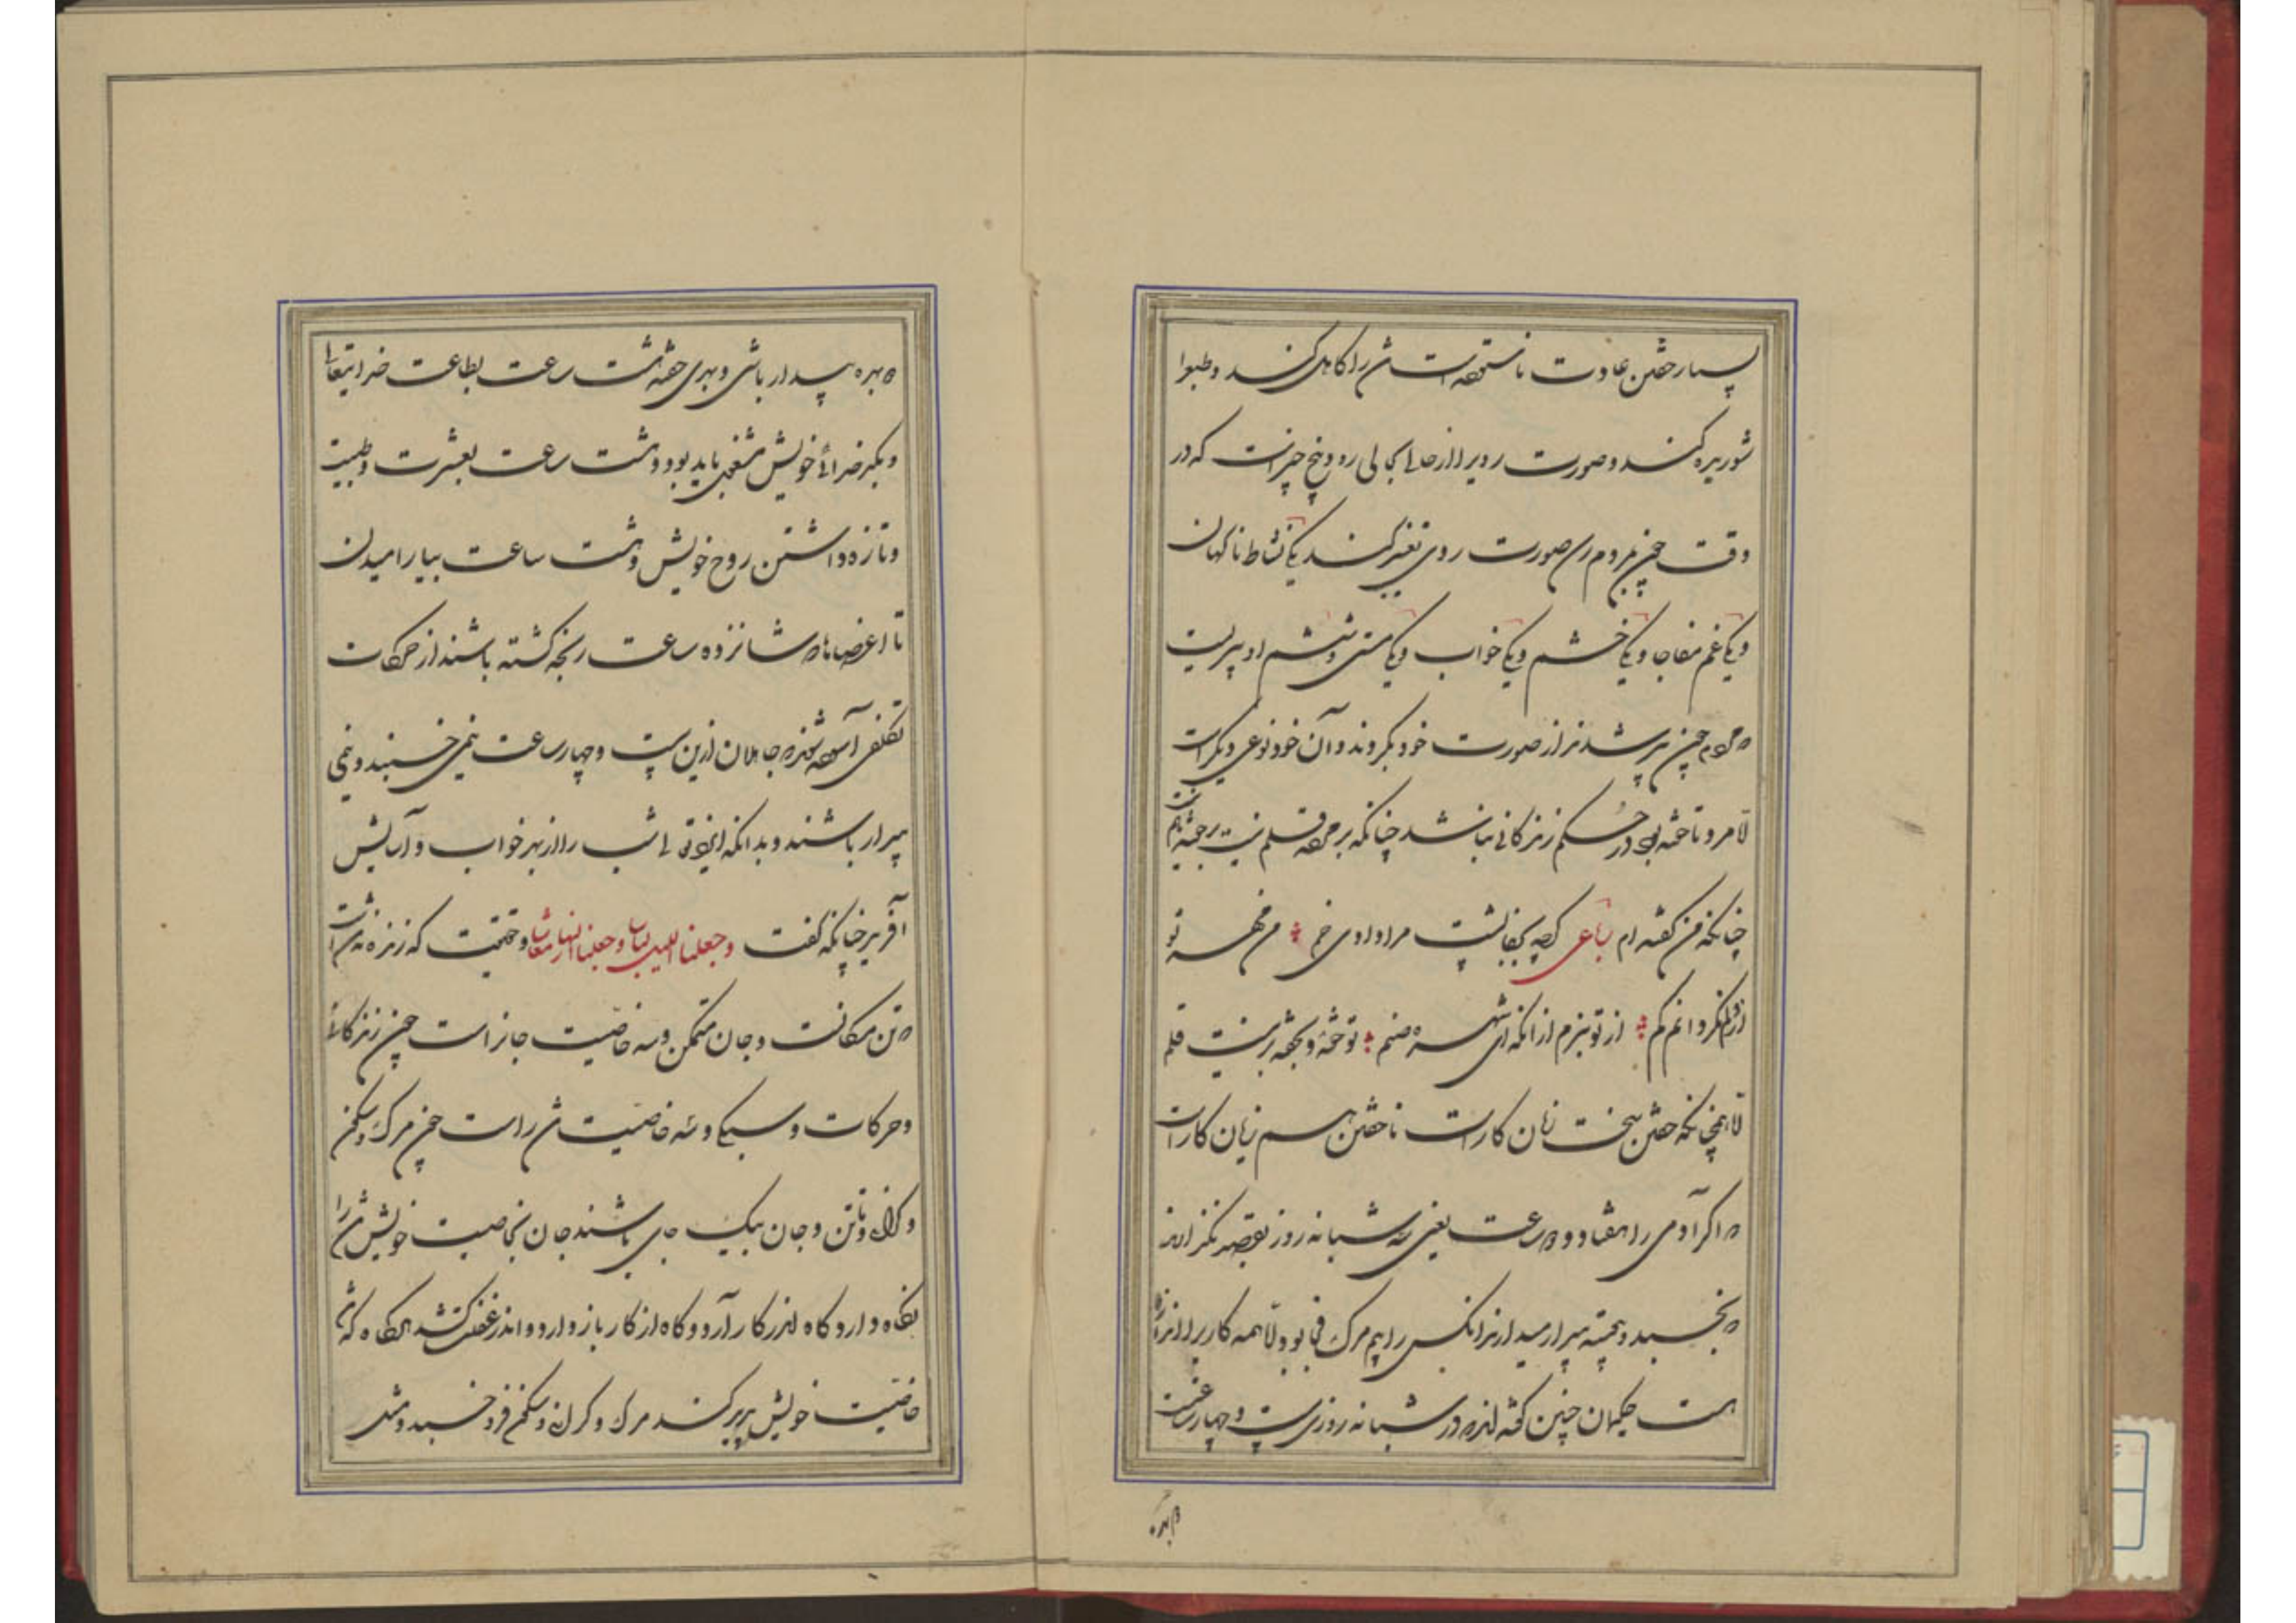 بسیار خفتن عادت ناستوده است تن را کاهل کند و طبع را
شوریده کند و صورت روی را از حالی بحالی برد و پنج چیز است که در
وقت چون بمردم رسد صورت روی تغییر کند یکی نشاط ناگهان
و یکی غم مفاجا و یکی خشم و یکی خواب و یکی مستی و ششم او پیریست
که مردم چون پیر شد نیز از صورت خود بگردند و آن خود نوعی دیگر است
اما مردم تا خفته بود در حکم زندگانی نباشد چنانکه بر مرده قلم نیست بر خفته هم نیست
چنانکه من گفته ام رباعی گرچه بجفا پشت مرا دادی خم من مهر تو
از تو نبرم از آنکه ای شهره صنم تو خفته و بر خفته نیست قلم
همچنانکه خفتن سخت زیان کار است ناخفتن هم زیان کار است
که اگر آدمی را هفتاد و دو ساعت یعنی سه شبانه روز بقصد نگذارند
که بخسبد و پیوسته بیدار میدارند آنکس را بیم مرگ فجا بود اما همه کار برا اندازه
است حکیمان چنین گفته اند که در شبانه روزی بیست و چهار ساعتست
که بهره بیدار باشی و بهری خفته هشت ساعت بطاعت خدایتعالی
و بکدخدائی خویش مشغول باید بود و هشت ساعت بعشرت و طیبت
و تازه داشتن روح خویش و هشت ساعت بیارامیدن
تا اعضاها که شانزده ساعت رنجه گشته باشند از حرکات
تکلفی آسوده شوند و جاهلان ازین بیست و چهار ساعت نیمی خسبند و نیمی
بیدار باشند و بدانکه ایزد تعالی شب را از بهر خواب و آسایش
آفرید چنانکه گفت وجعلنا اللیل لباسا وجعلنا النهار معاشا و حقیقت که زنده بجان است
که تن مکانست و جان متمکن و سه خاصیت جانراست چون زندگانی
و حرکات و سبکی و سه خاصیت تن راست چون مرگ و سکون
و گرانی و تا تن و جان بیک جای باشند جان بخاصیت خویش تن را
نگاه دارد گاه اندر کار آرد و گاه از کار باز دارد و اندر غفلت کشد هرگاه که تن
خاصیت خویش پدید کند مرگ و گرانی و سکون فرو خسبد و مثل
که بهره